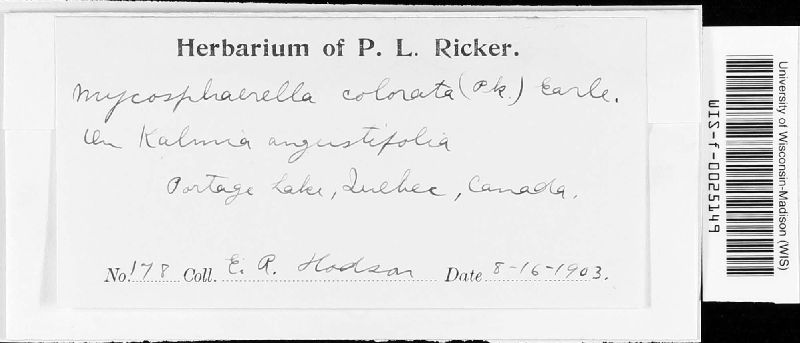 Herbarium of P. L. Ricker.
Mycosphaerella colorata (Pk.) Earle.
On Kalmia angustifolia
Portage Lake, Quebec, Canada.
No. 178 Coll. E. R. Hodson Date 8-16-1903.
University of Wisconsin-Madison (WIS)
WIS-f-0025149